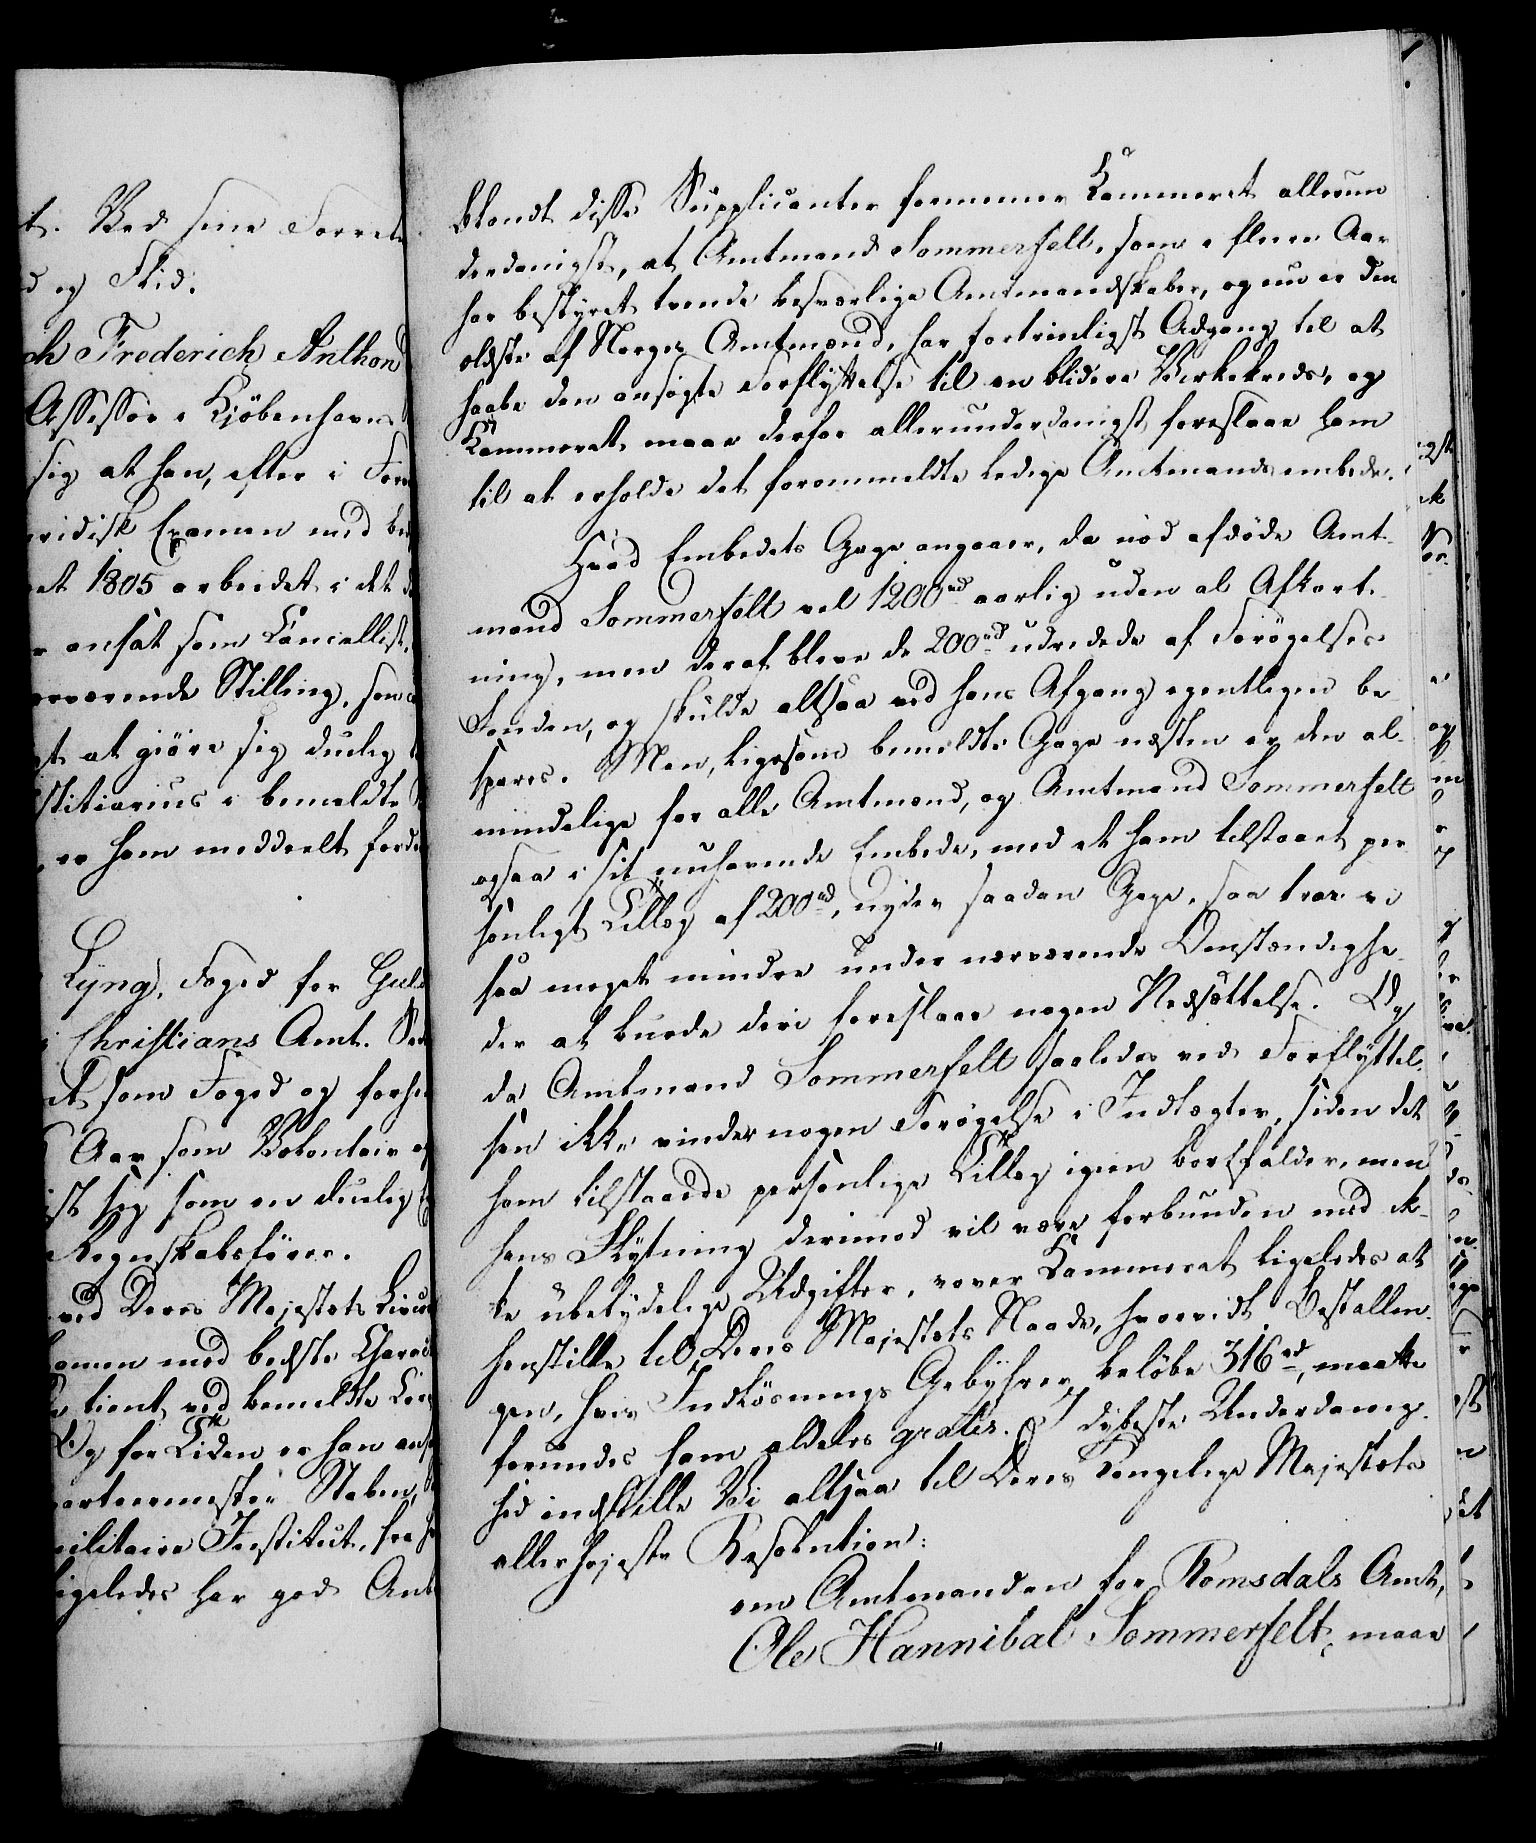 t. Ved sine Forret
d og Flid.
ch Frederich Anthon
Assessor i Kjöbenhavns
sig at han, efter i For
ridisk Examen med be
et 1805 arbeidet i det
ansat som Cancellist,
rværende Stilling, som
at giöre sig duelig
stitiarius i bemeldte
er ham meddeelt
Lyng, Foged for Guld
Christians Amt.
som Foged og forhen
Aar som Volontair
st sig som en duelig
Regnskabsförer.
ved Deres Majestæts Livre
amen med bedste Charac
tient ved bemeldte
Og for Tiden er han ansat
arteermester Staben,
militaire Institut, fra
igeledes har god
blandt disse Supplicanter formener Kammeret allerun
derdanigst, at Amtmand Sommerfelt, som i flere Aar
har bestyret tvende besværlige Amtmandskaber, og nu er den
ældste af Norges Amtmænd, har fortrinligst Adgang til at
haabe den ansögte Forflyttelse til en blidere Virkekreds, og
Kammeret maae derfor allerunderdanigst foreslaae ham
til at erholde det forommeldte ledige Amtmandsembede.
Hvad Embedets Gage angaaer, da nöd afdöde Amt-
mand Sommerfelt vel 1200 rd aarlig uden al Afkort-
ning, men deraf bleve de 200 rd udredede af Forögelses
Fonden, og skulde altsaa ved hans Afgang egentligen be-
spares. Men, ligesom bemeldte Gage næsten er den al-
mindelige for alle Amtmænd, og Amtmand Sommerfelt
ogsaa i sit nuhavende Embede, med et ham tilstaaet per-
sonligt Tillæg af 200 rd, nyder saadan Gage, saa troer vi
saa meget mindre under nærværende Omstændighe-
der at burde deri foreslaae nogen Nedsættelse. Og
da Amtmand Sommerfelt saaledes ved Forflyttel-
sen ikke vinder nogen Forögelse i Indtægter, siden det
ham tilstaaede personlige Tillæg igien bortfalder, men
hans Flytning derimod vil være forbunden med ik-
ke ubetydelige Udgifter, vover Kammeret ligeledes at
henstille til Deres Majestæts Naade, hvorvidt Bestallin-
gen, hvis Indlösnings Gebyhrer beløbe 316 rd, maatte
forundes ham aldeles gratis. I dybeste Underdanig-
hed indstille Vi altsaa til Deres Kongelige Majestæts
allerhöjeste Resolution:
om Amtmanden for Romsdals Amt,
Ole Hannibal Sommerfelt, maae